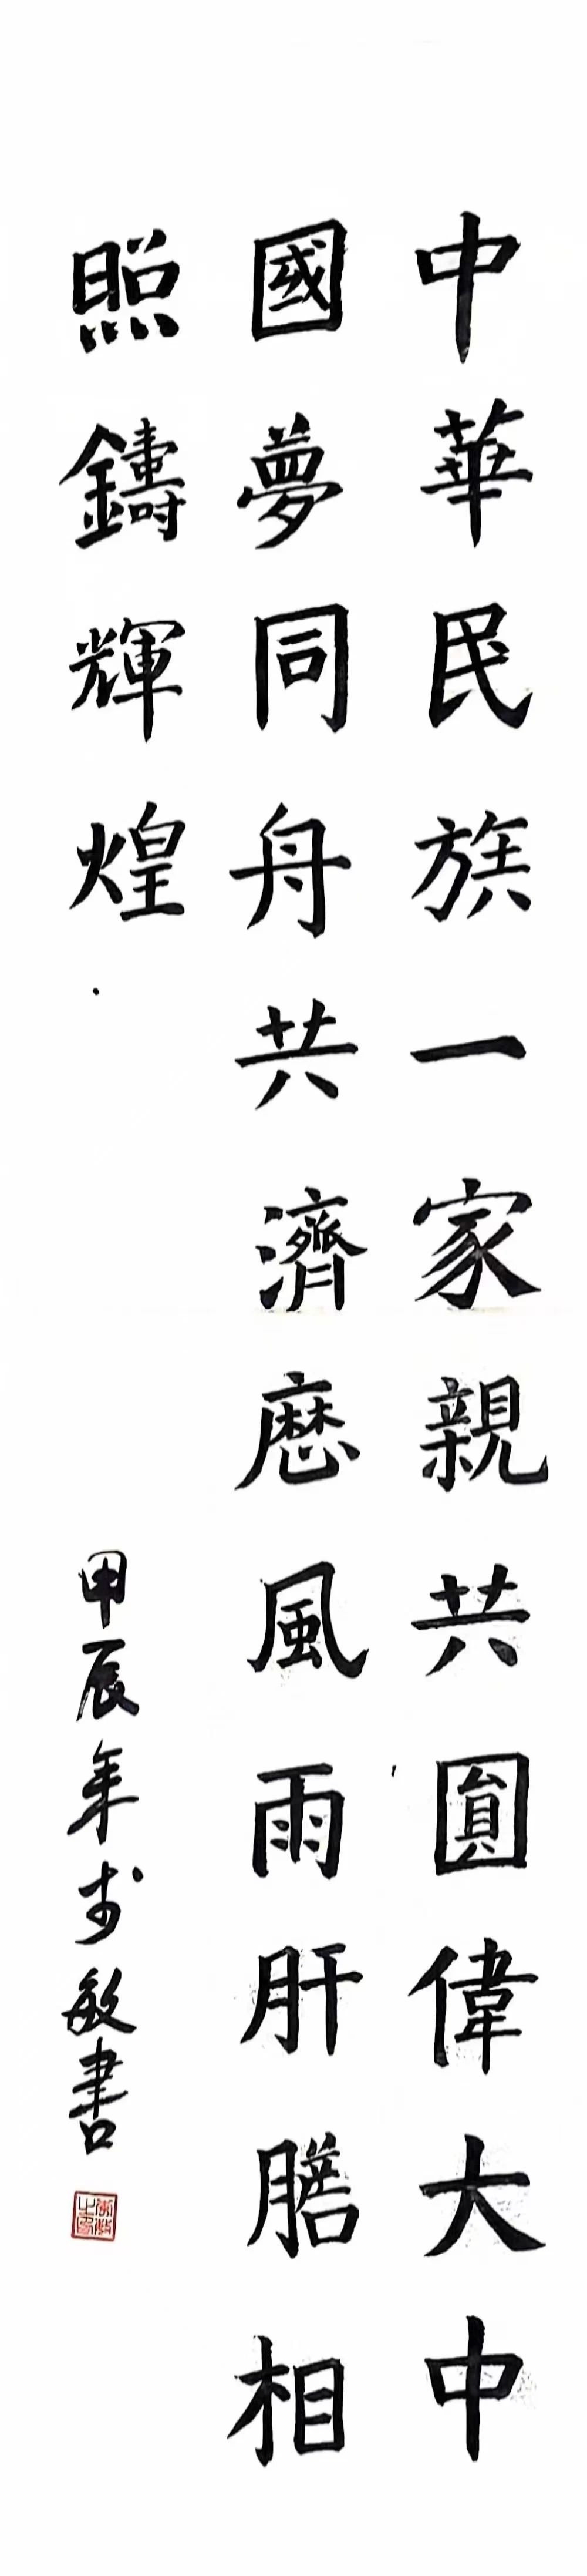 中華民族一家親共圓偉大中
國夢同舟共濟歷風雨肝膽相
照鑄輝煌
甲辰年敏書